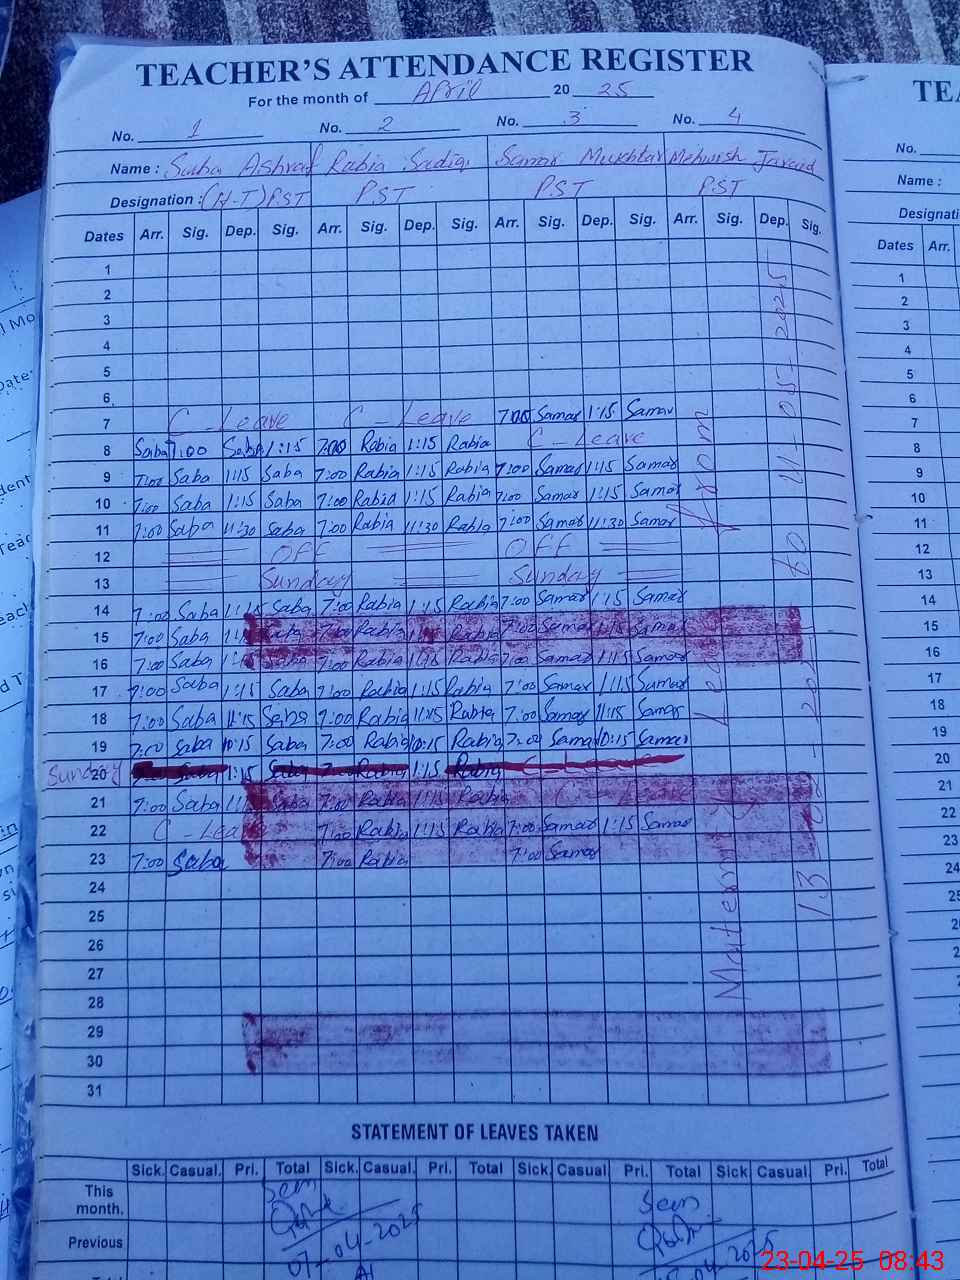 TEACHER'S ATTENDANCE REGISTER
For the month of April 20 25
No. 1 No. 2 No. 3 No. 4
Name : Saba Ashraf Rabia Sadiq Samar Mukhtar Mehwish Javaid
Designation : (H-T) PST PST PST PST
Dates Arr. Sig. Dep. Sig. Arr. Sig. Dep. Sig. Arr. Sig. Dep. Sig. Arr. Sig. Dep. Sig.
1
2
3
4
5
6
7 C - Leave C - Leave 7:00 Samar 1:15 Samar
8 Saba 7:00 Saba 1:15 7:00 Rabia 1:15 Rabia C - Leave
9 7:00 Saba 1:15 Saba 7:00 Rabia 1:15 Rabia 7:00 Samar 1:15 Samar
10 7:00 Saba 1:15 Saba 7:00 Rabia 1:15 Rabia 7:00 Samar 1:15 Samar
11 7:00 Saba 11:30 Saba 7:00 Rabia 11:30 Rabia 7:00 Samar 11:30 Samar
12 OFF OFF
13 Sunday Sunday
14 7:00 Saba 1:15 Saba 7:00 Rabia 1:15 Rabia 7:00 Samar 1:15 Samar
15 7:00 Saba 1:15 Saba 7:00 Rabia 1:15 Rabia 7:00 Samar 1:15 Samar
16 7:00 Saba 1:15 Saba 7:00 Rabia 1:15 Rabia 7:00 Samar 1:15 Samar
17 7:00 Saba 1:15 Saba 7:00 Rabia 1:15 Rabia 7:00 Samar 1:15 Samar
18 7:00 Saba 11:15 Saba 7:00 Rabia 11:15 Rabia 7:00 Samar 11:15 Samar
19 7:00 Saba 10:15 Saba 7:00 Rabia 10:15 Rabia 7:00 Samar 10:15 Samar
Sunday 20 Saba 1:15 Saba 7:00 Rabia 1:15 Rabia
21 7:00 Saba 1:15 Saba 7:00 Rabia 1:15 Rabia C - Leave
22 C - Leave 7:00 Rabia 1:15 Rabia 7:00 Samar 1:15 Samar
23 7:00 Saba 7:00 Rabia 7:00 Samar
24
25
26
27
28
29
30
31
Leave from
to
STATEMENT OF LEAVES TAKEN
Sick. Casual. Pri. Total Sick. Casual. Pri. Total Sick Casual Pri. Total Sick Casual. Pri. Total
This month.
Seen Seen
Previous
07-04-2025 04-2025
TEA
No.
Name :
Designati
Dates Arr.
1
2
3
4
5
6
7
8
9
10
11
12
13
14
15
16
17
18
19
20
21
22
23
24
23-04-25 08:43